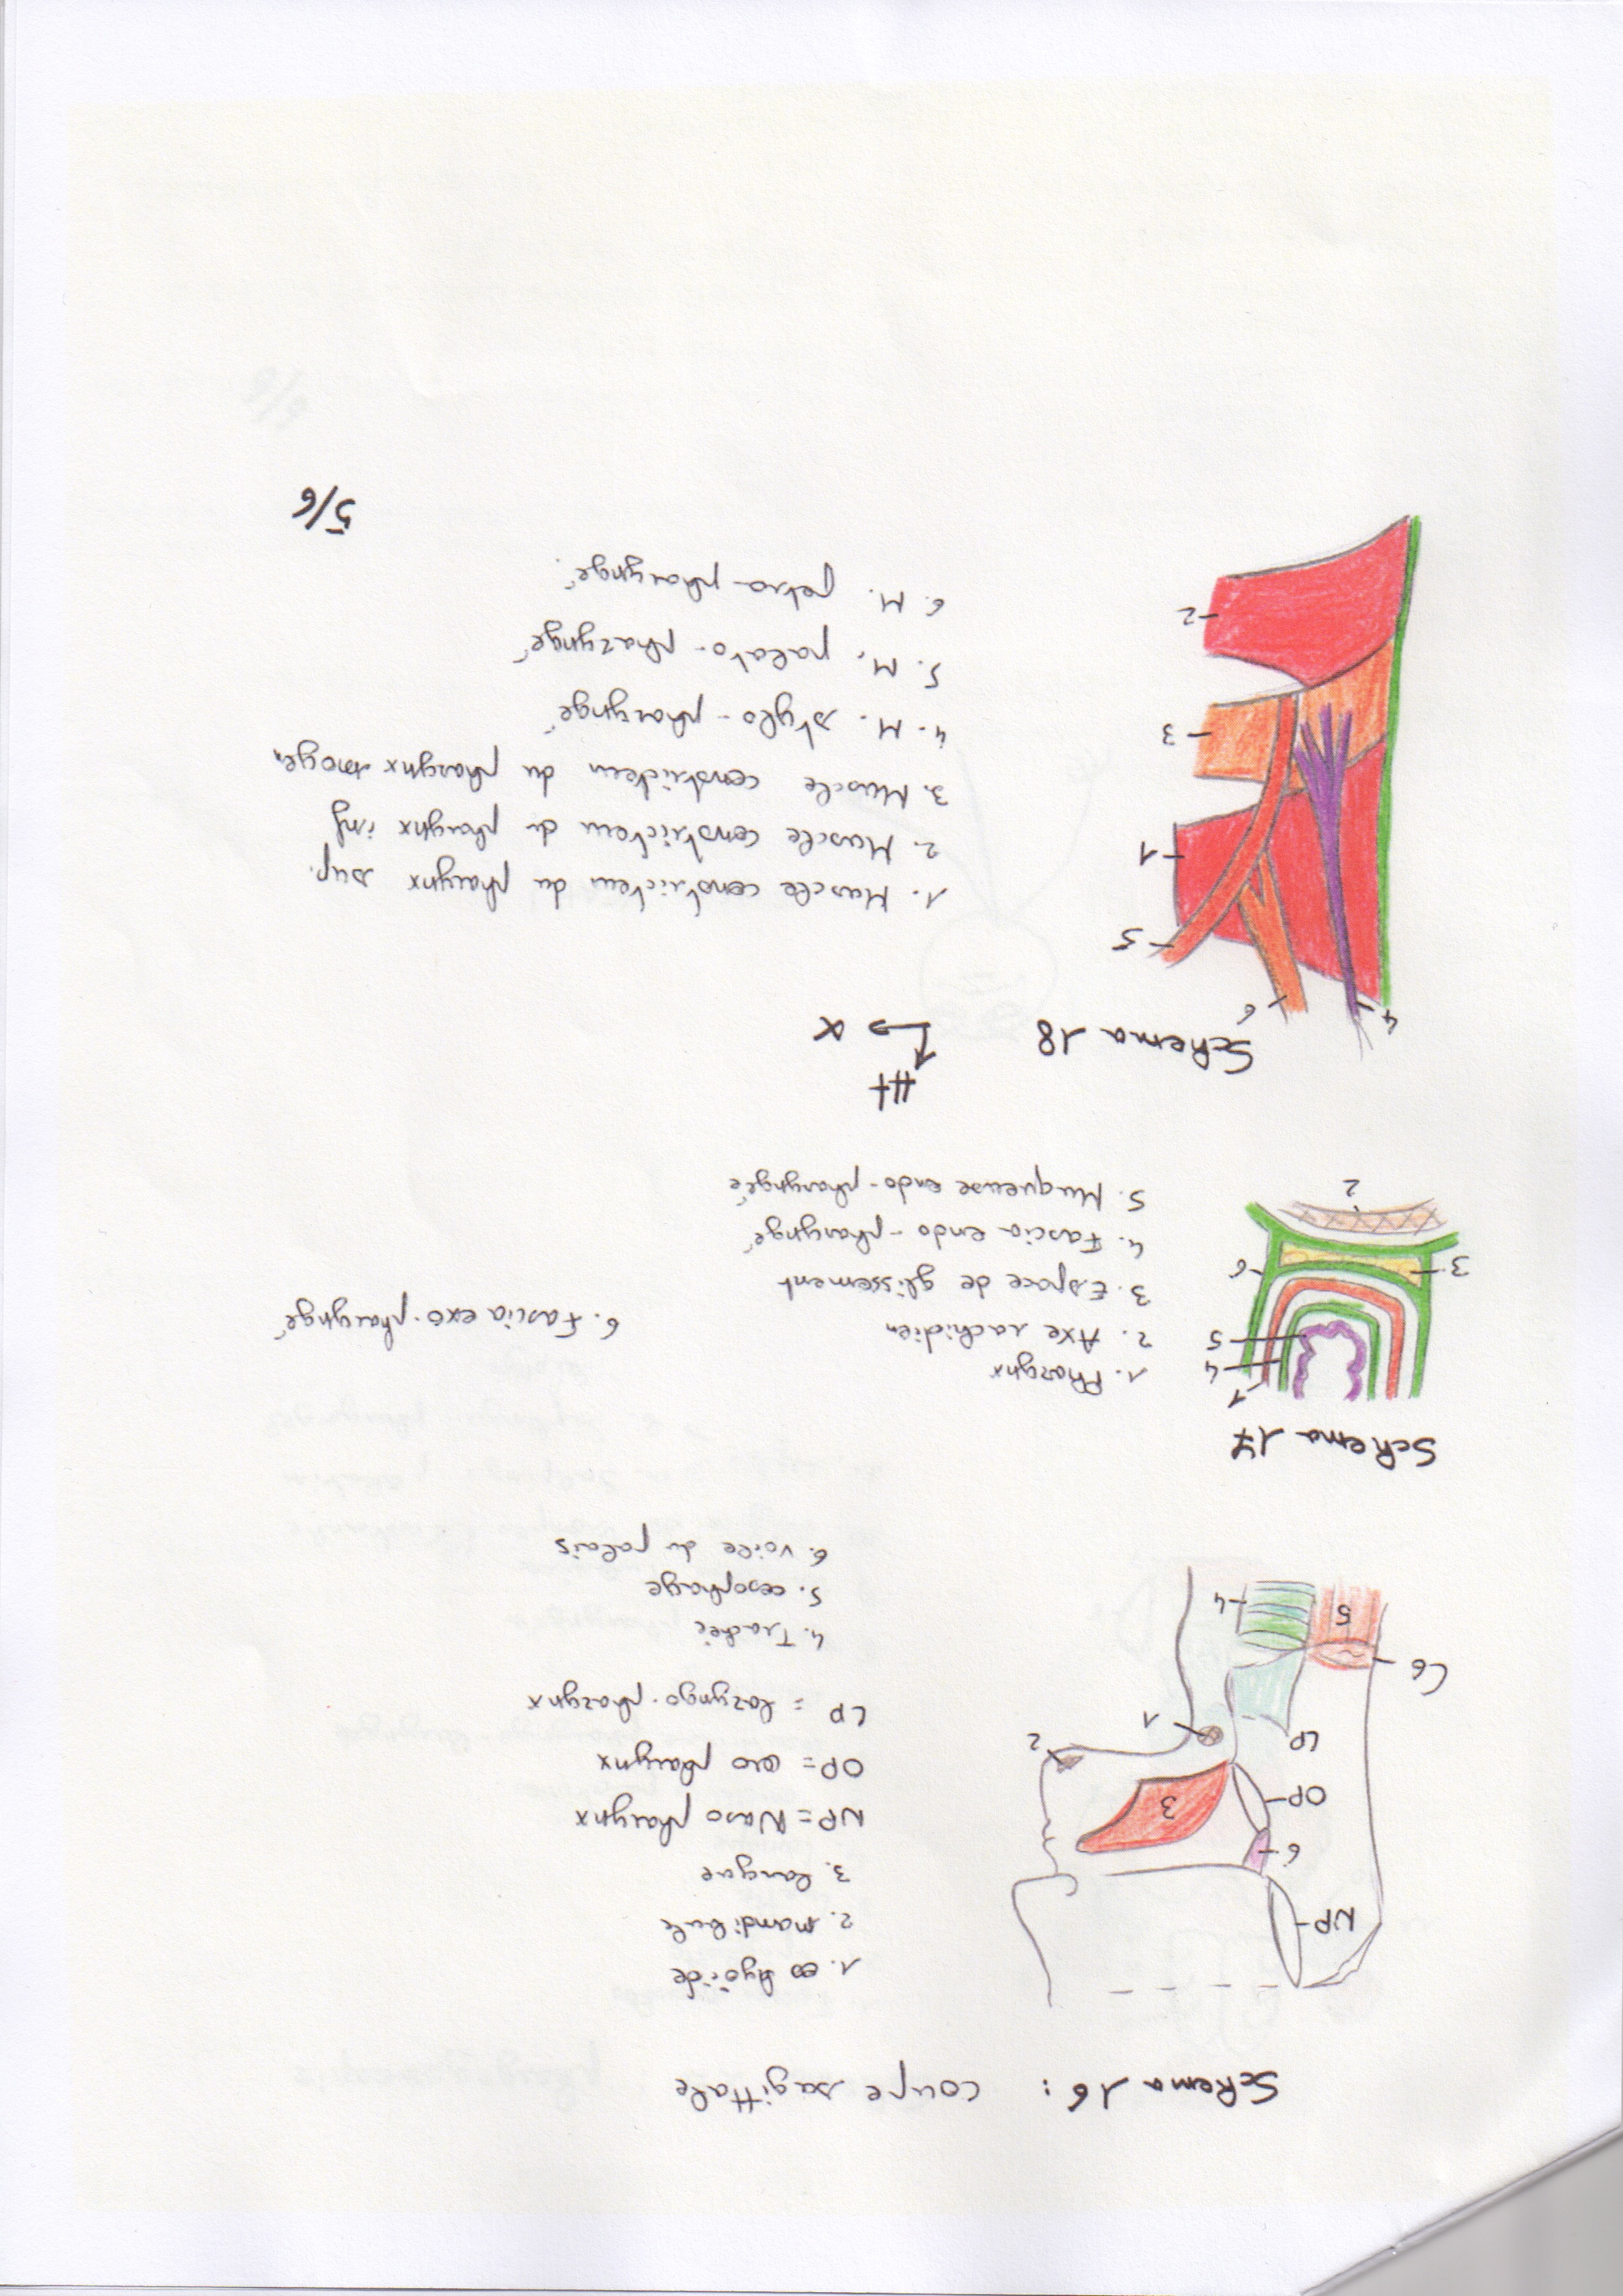 Schema 16 : coupe sagittale
1. os hyoïde
2. mandibule
3. langue
NP = Naso pharynx
OP = oro pharynx
LP = laryngo-pharynx
4. Trachée
5. oesophage
6. voile du palais
NP
6
OP
LP
C6
3
2
1
5
4
Schema 17
1. Pharynx
2. Axe rachidien
3. Espace de glissement
4. Fascia endo-pharyngé
5. Muqueuse endo-pharyngée
6. Fascia exo-pharyngé
1
4
5
6
3
2
Schema 18
Ht
1. Muscle constricteur du pharynx sup.
2. Muscle constricteur du pharynx inf
3. Muscle constricteur du pharynx moyen
4. M. stylo-pharyngé
5. M. palato-pharyngé
6. M. petro-pharyngé.
4
6
5
1
3
2
5/6